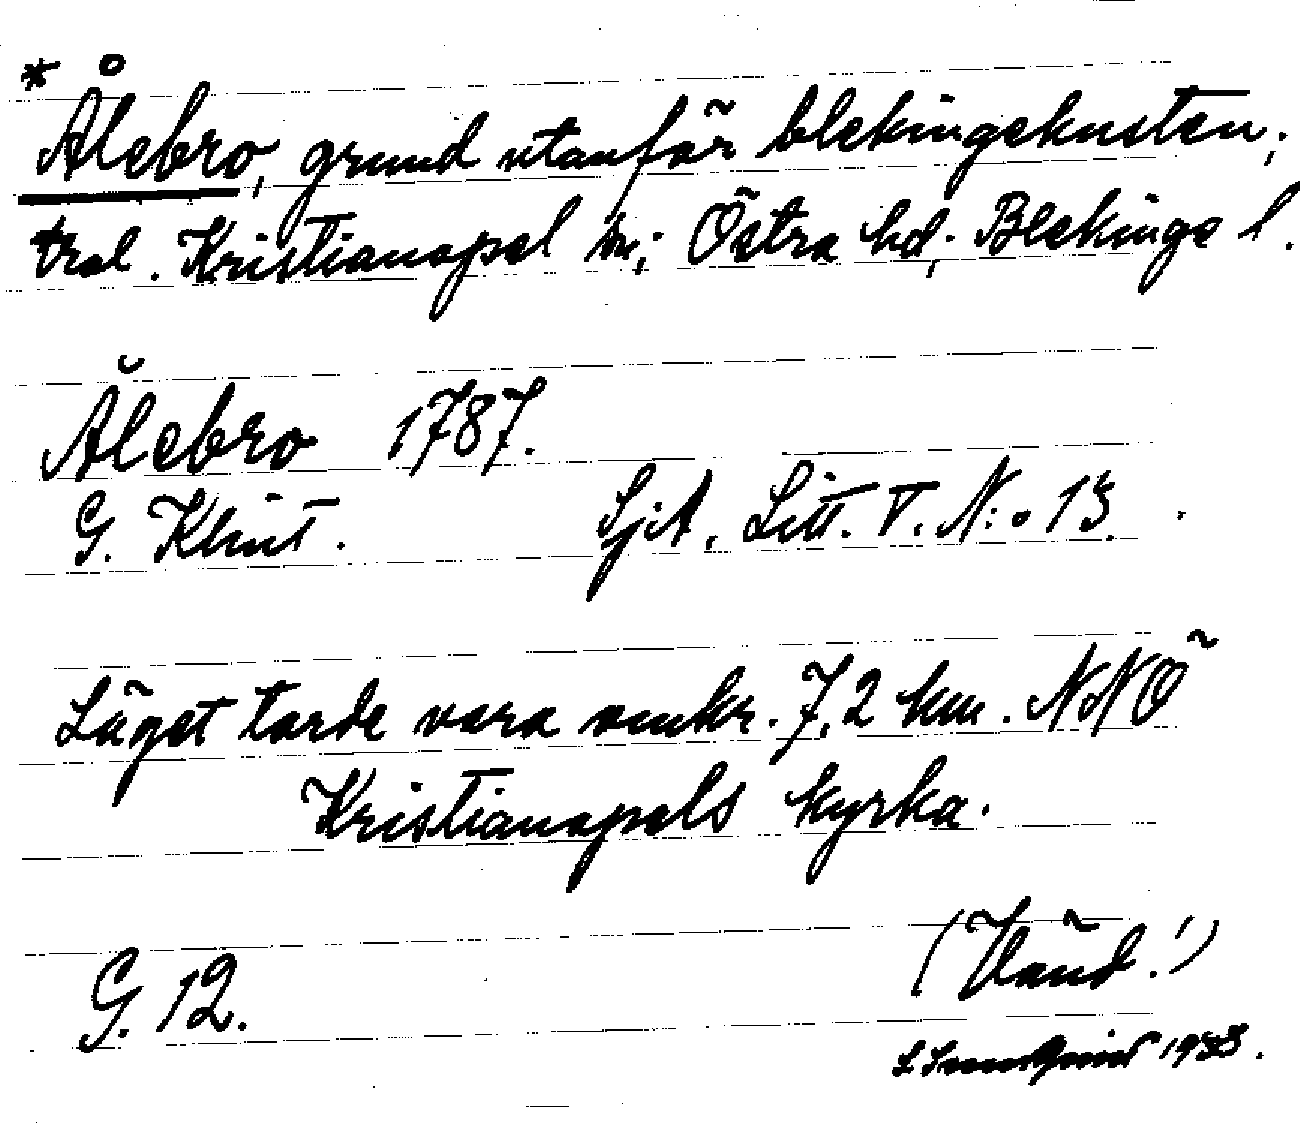 * Ålebro, grund utanför blekingekusten,
trol. Kristianopel sn; Östra hd, Blekinge l.
Ålebro 1787.
G. Klint. SjA, Litt. V. N:o 13.
Läget torde vara omkr. 7,2 km. NNÖ
Kristianopels kyrka.
G. 12. (Vänd!)
1933.